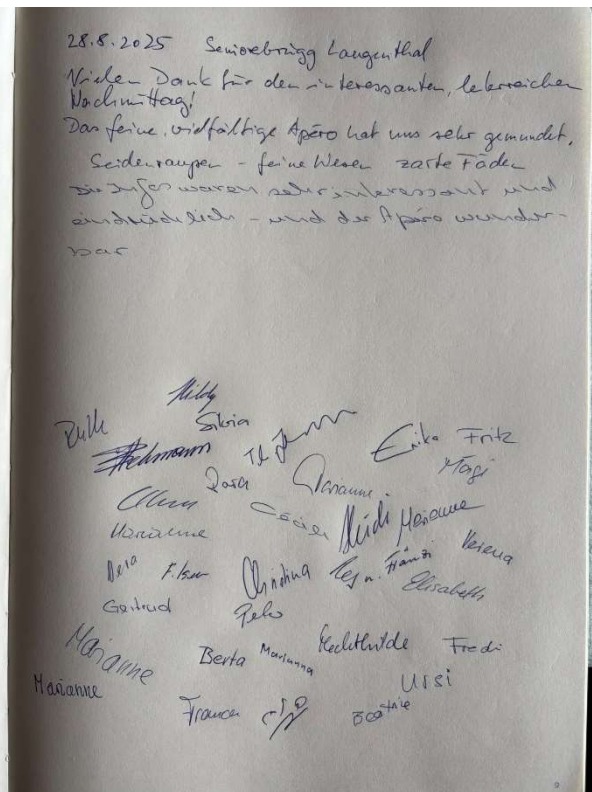 28.8.2025 Seniorebrügg Langenthal
Vielen Dank für den interessanten, lehrreichen
Nachmittag!
Das feine, vielfältige Apéro hat uns sehr gemundet.
Seidenraupen - feine Wesen zarte Fäden
Die Infos waren sehr interessant und
eindrücklich - und der Apéro wunder-
bar
Hildy
Ruth Silvia
Erika Fritz
Rosa Marianne Magi
Cécile Heidi Marianne
Marianne Verena
Vera Christina Fränzi
Elisabeth
Gertrud
Marianne Berta Marianna Mechthilde Fredi
Marianne Ursi
Beatrice